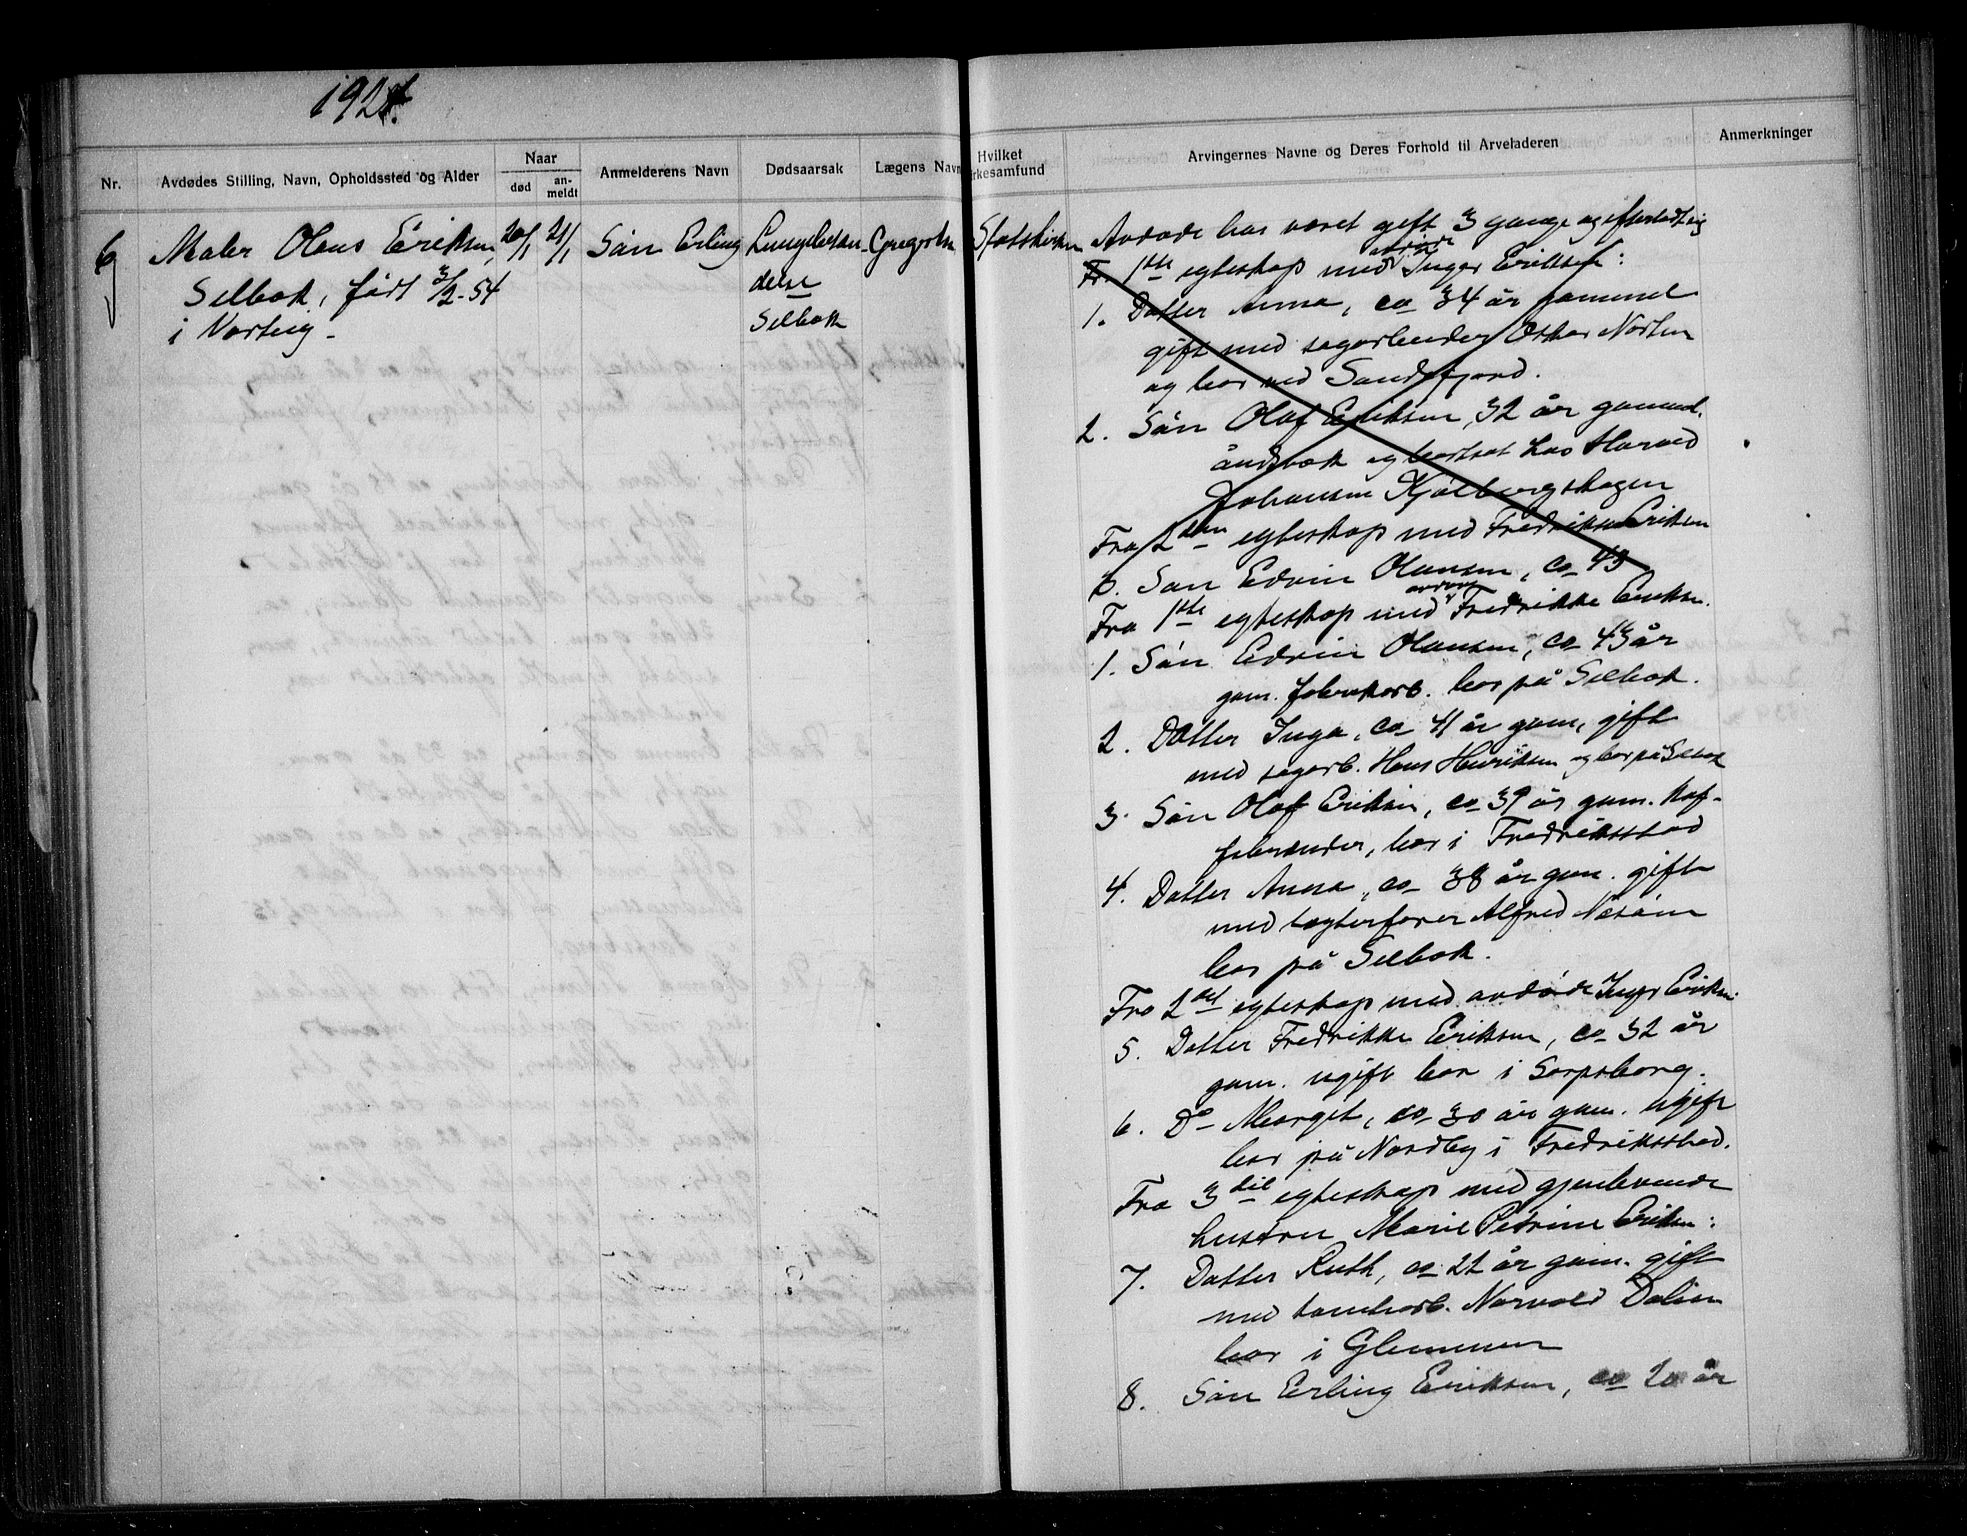 1921.
Nr.
Avdødes Stilling, Navn, Opholdssted og Alder
Naar
død
an-
meldt
Anmelderens Navn
Dødsaarsak
Lægens Navn
Hvilket
rkesamfund
Arvingernes Navne og Deres Forhold til Arveladeren
Anmerkninger
6
Maler Olaus Eriksen,
Selbak, født 3/2-54
i Varteig -
20/1
21/1
Søn Erling
Lungebetæn-
delse
Selbak
Gregertsen
Statskirken
Avdøde har været gift 3 gange og efterladt sig
avdøde
Fr. 1ste egteskap med Inger Eriksen:
1. Datter Anna, ca 34 år gammel
gift med sagarbeider Oskar
og bor ved Sandefjord.
2. Søn Olaf Eriksen, 32 år gammel.
åndsvak og bortsat hos Harald
Johansen Kjølbergskogen
Fra 2den egteskap med Fredrikke Eriksen
3. Søn Edvin Olausen, ca 43
avdøde
Fra 1ste egteskap med Fredrikke Eriksen.
1. Søn Edvin Olausen, ca 43 år
gam. fabrikarb. bor på Selbak.
2. Datter Inga, ca 41 år gam, gift
med sagarb. Hans Henriksen og bor på Selbak
3. Søn Olaf Eriksen, ca 39 år gam. kaf-
febrænder, bor i Fredriksstad
4. Datter Anna, ca 38 år gam. gift
med lægterfører Alfred
bor på Selbak.
Fra 2det egteskap med avdøde Inger Eriksen.
5. Datter Fredrikke Eriksen, ca 32 år
gam. ugift bor i Sarpsborg.
6. Do Margit, ca 30 år gam. ugift
bor på Nordby i Fredriksstad.
Fra 3die egteskap med gjenlevende
hustru Marie Petrine Eriksen:
7. Datter Ruth, ca 22 år gam. gift
med tomtearb. Norvald Dalien
bor i Glemmen
8. Søn Erling Eriksen, ca 20 år